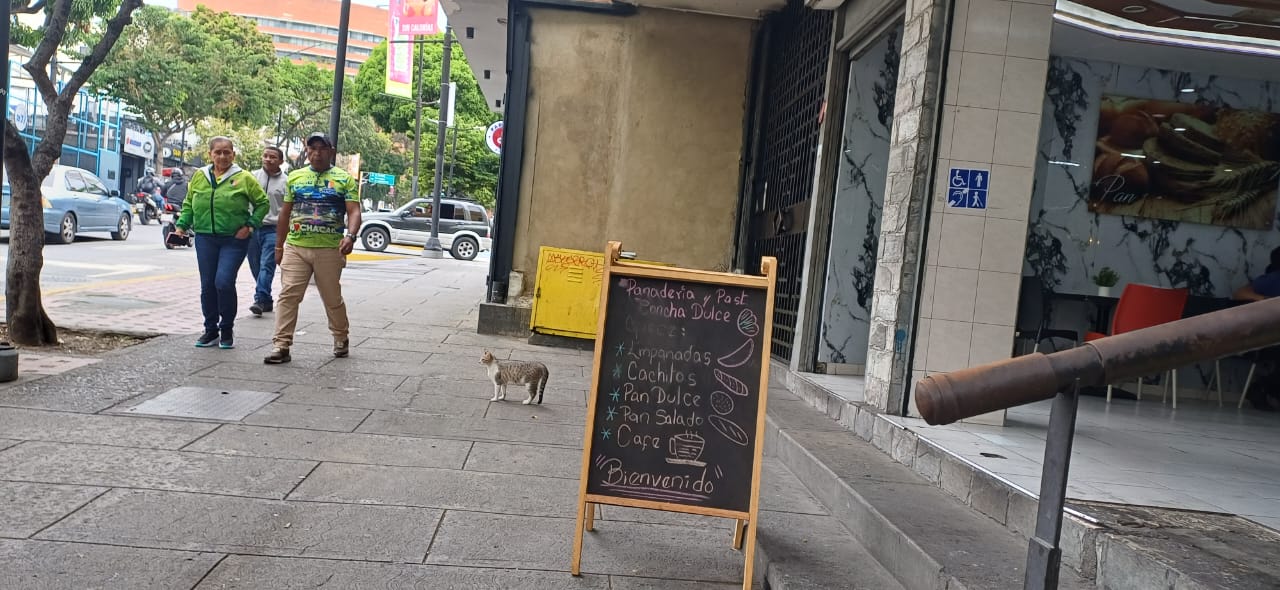 SIN CALORÍAS
CHACAO
Pan
Panadería y Past
Concha Dulce
Ofrece:
* Empanadas
* Cachitos
* Pan Dulce
* Pan Salado
* Cafe
"Bienvenido"